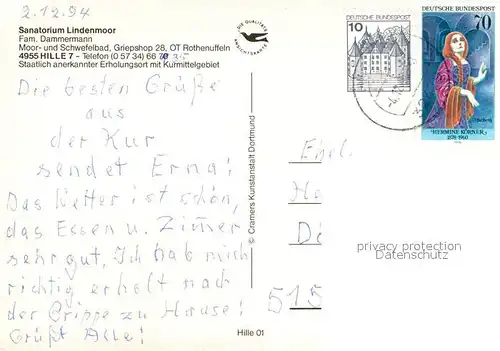 2.12.94
Sanatorium Lindenmoor
Fam. Dammermann
Moor- und Schwefelbad, Griepshop 28, OT Rothenuffeln
4955 HILLE 7 - Telefon (0 57 34) 66
Staatlich anerkannter Erholungsort mit Kurmittelgebiet
DIE QUALITÄTS
ANSICHTSKARTE
10
DEUTSCHE BUNDESPOST
DEUTSCHE BUNDESPOST
70
HERMINE KÖRNER
1878-1960
Die besten Grüße
aus
der Kur
sendet Erna!
Das Wetter ist schön,
das Essen u. Zimmer
sehr gut. Ich hab mich
richtig erholt nach
der Grippe zu Hause!
Grüßt Alle!
© Cramers Kunstanstalt Dortmund
Hille 01
515
privacy protection
Datenschutz